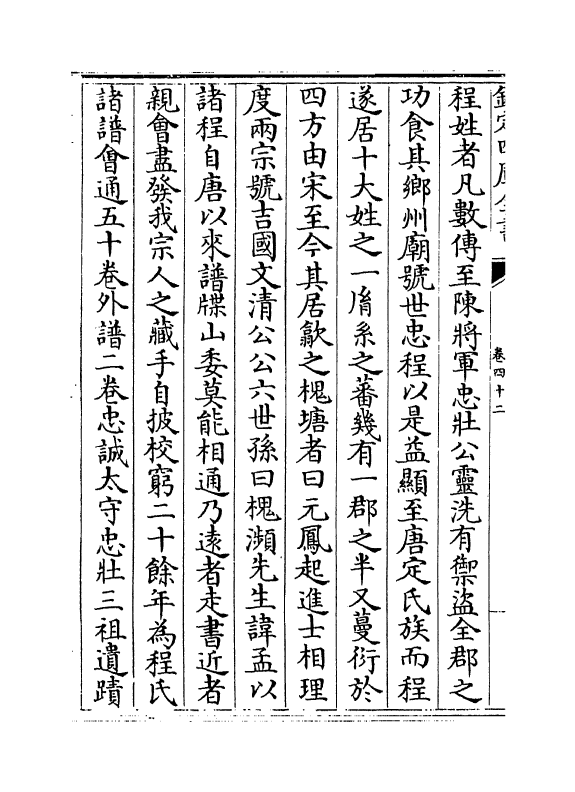 欽定四庫全書
卷四十二
程姓者凡數傳至陳將軍忠壯公靈洗有禦盜全郡之
功食其鄉州廟號世忠程以是益顯至唐定氏族而程
遂居十大姓之一胤系之蕃幾有一郡之半又蔓衍於
四方由宋至今其居歙之槐塘者曰元鳳起進士相理
度兩宗號吉國文清公公六世孫曰槐瀕先生諱孟以
諸程自唐以來譜牒山委莫能相通乃遠者走書近者
親會盡發我宗人之藏手自披校窮二十餘年為程氏
諸譜會通五十卷外譜二卷忠誠太守忠壯三祖遺蹟